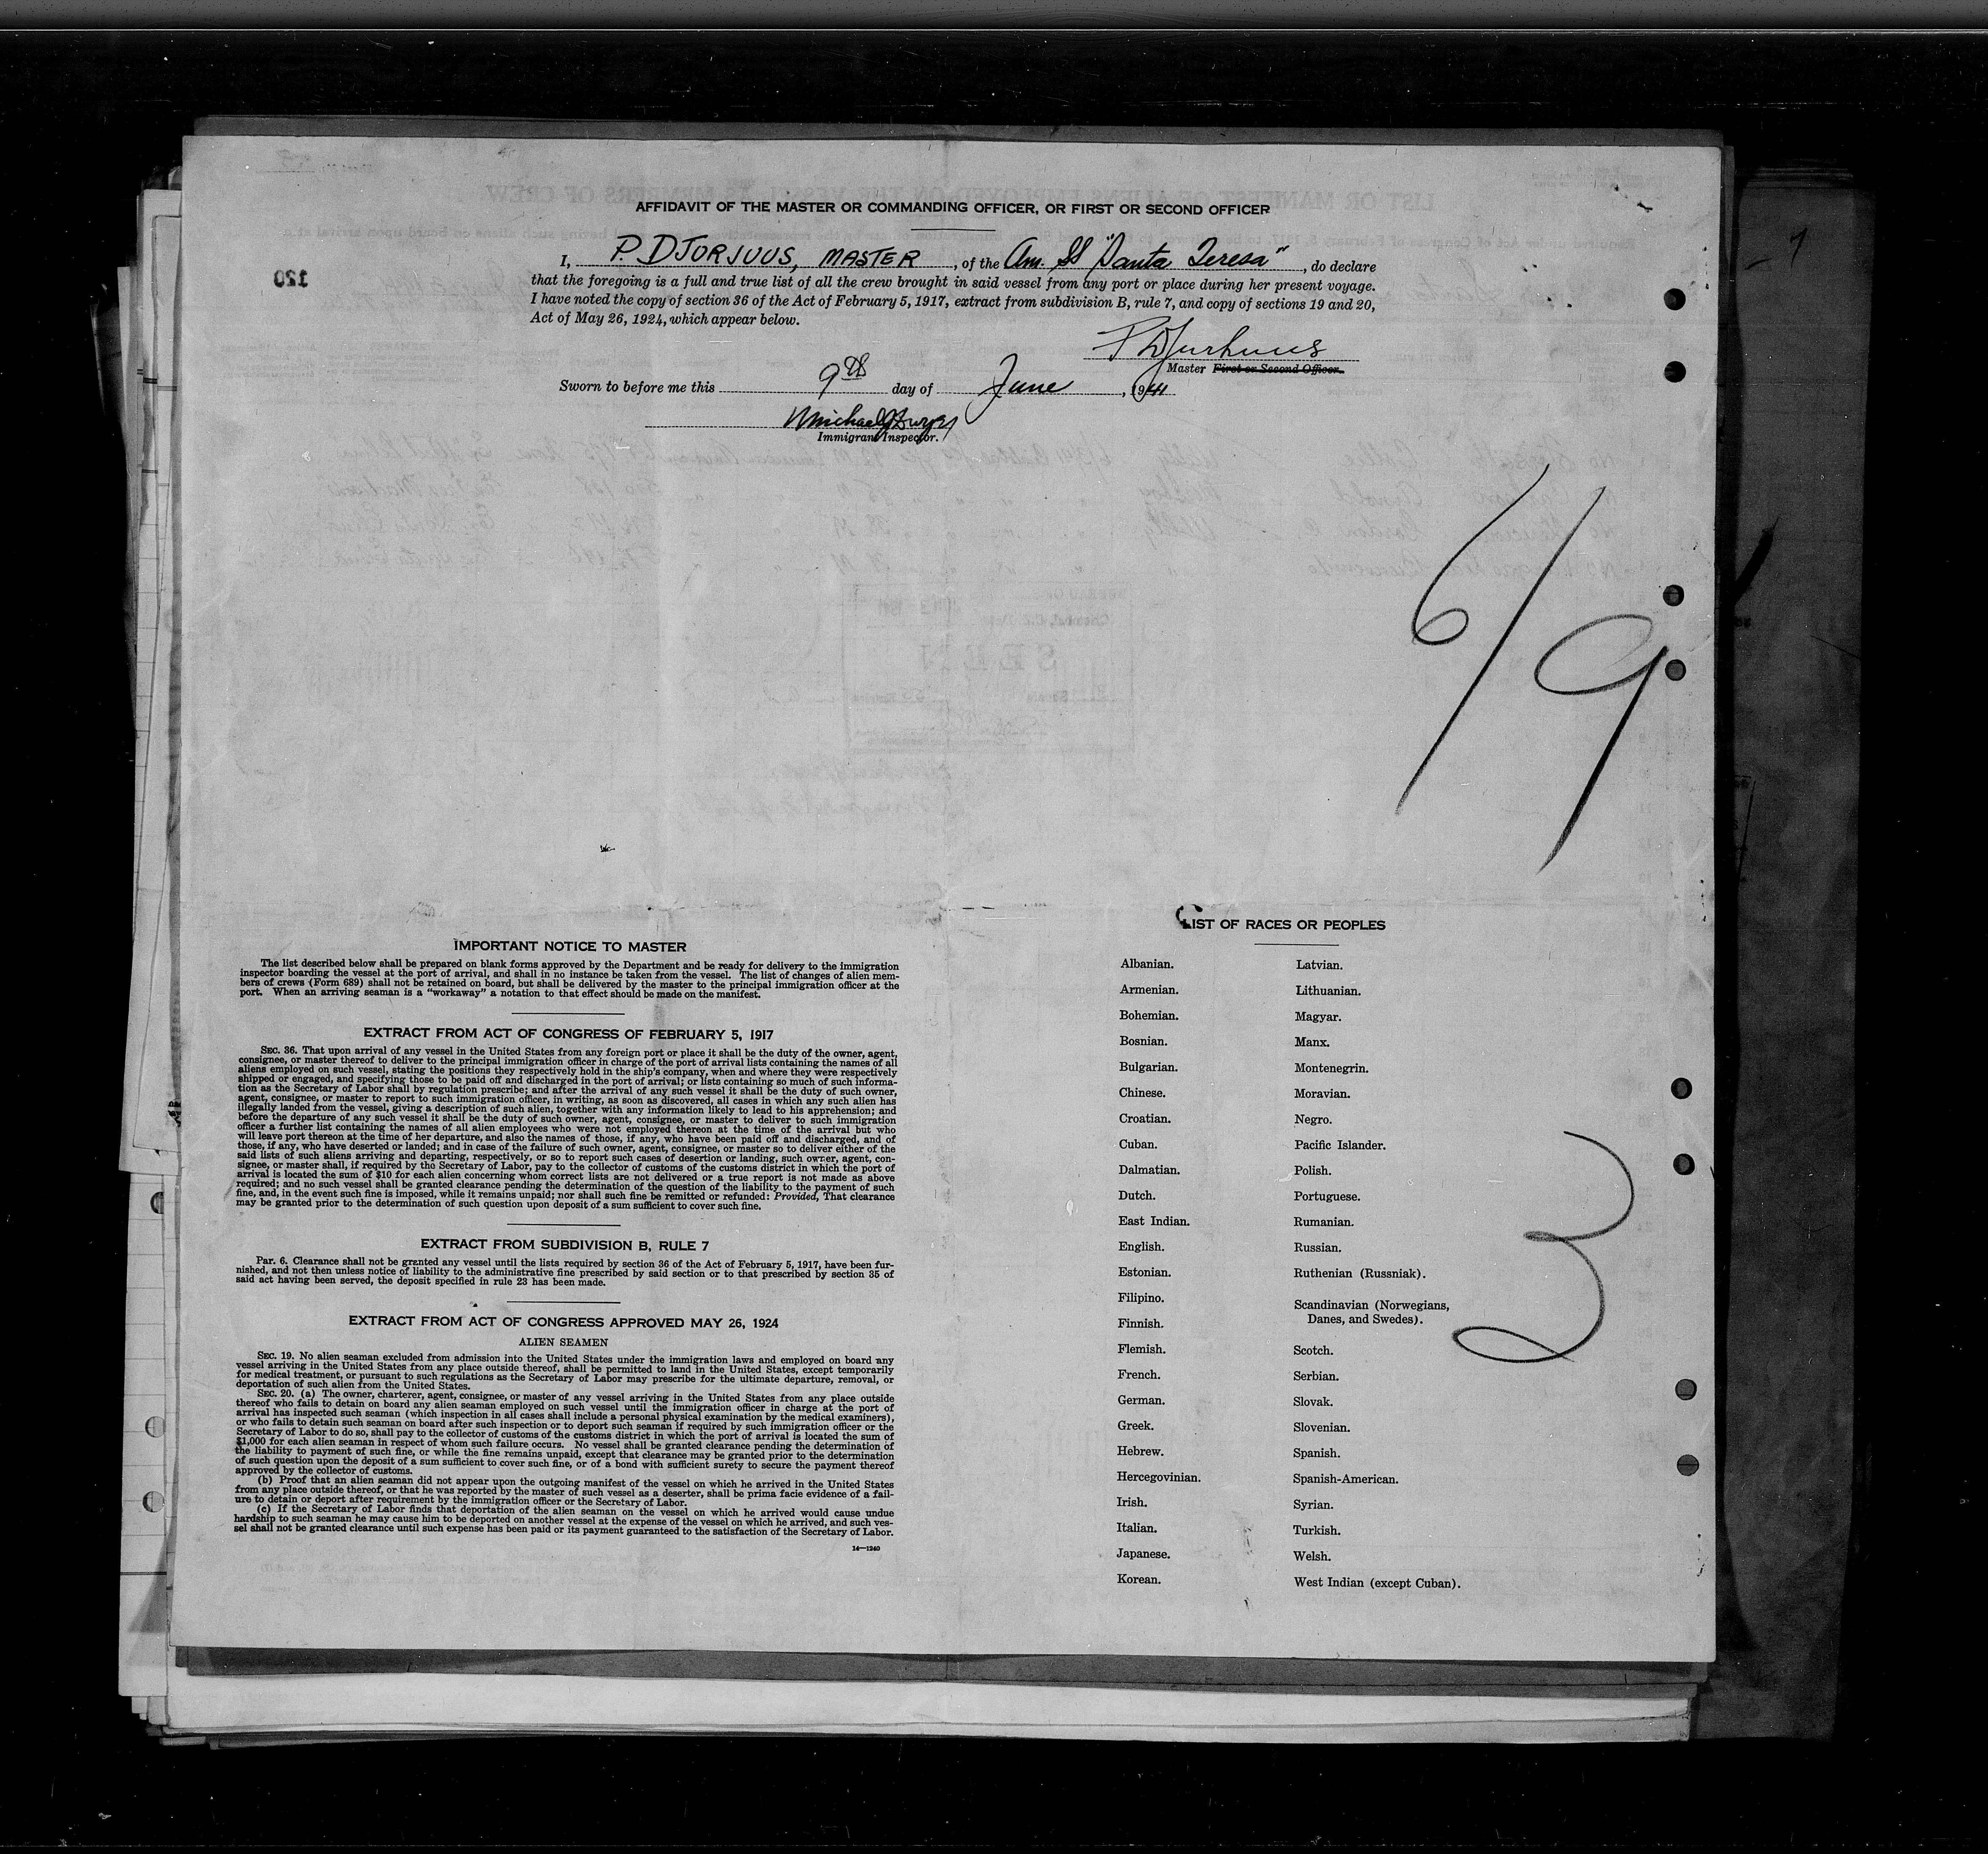 AFFIDAVIT OF THE MASTER OR COMMANDING OFFICER, OR FIRST OR SECOND OFFICER
I, P. DJORJUUS, MASTER, of the Am. SS "Santa Teresa", do declare
that the foregoing is a full and true list of all the crew brought in said vessel from any port or place during her present voyage.
I have noted the copy of section 36 of the Act of February 5, 1917, extract from subdivision B, rule 7, and copy of sections 19 and 20,
Act of May 26, 1924, which appear below.
Master First or Second Officer.
Sworn to before me this 9th day of June, 1941
Immigrant Inspector.
120
6/9
IMPORTANT NOTICE TO MASTER
The list described below shall be prepared on blank forms approved by the Department and be ready for delivery to the immigration
inspector boarding the vessel at the port of arrival, and shall in no instance be taken from the vessel. The list of changes of alien mem-
bers of crews (Form 689) shall not be retained on board, but shall be delivered by the master to the principal immigration officer at the
port. When an arriving seaman is a "workaway" a notation to that effect should be made on the manifest.
EXTRACT FROM ACT OF CONGRESS OF FEBRUARY 5, 1917
SEC. 36. That upon arrival of any vessel in the United States from any foreign port or place it shall be the duty of the owner, agent,
consignee, or master thereof to deliver to the principal immigration officer in charge of the port of arrival lists containing the names of all
aliens employed on such vessel, stating the positions they respectively hold in the ship's company, when and where they were respectively
shipped or engaged, and specifying those to be paid off and discharged in the port of arrival; or lists containing so much of such informa-
tion as the Secretary of Labor shall by regulation prescribe; and after the arrival of any such vessel it shall be the duty of such owner,
agent, consignee, or master to report to such immigration officer, in writing, as soon as discovered, all cases in which any such alien has
illegally landed from the vessel, giving a description of such alien, together with any information likely to lead to his apprehension; and
before the departure of any such vessel it shall be the duty of such owner, agent, consignee, or master to deliver to such immigration
officer a further list containing the names of all alien employees who were not employed thereon at the time of the arrival but who
will leave port thereon at the time of her departure, and also the names of those, if any, who have been paid off and discharged, and of
those, if any, who have deserted or landed; and in case of the failure of such owner, agent, consignee, or master so to deliver either of the
said lists of such aliens arriving and departing, respectively, or so to report such cases of desertion or landing, such owner, agent, con-
signee, or master shall, if required by the Secretary of Labor, pay to the collector of customs of the customs district in which the port of
arrival is located the sum of $10 for each alien concerning whom correct lists are not delivered or a true report is not made as above
required; and no such vessel shall be granted clearance pending the determination of the question of the liability to the payment of such
fine, and, in the event such fine is imposed, while it remains unpaid; nor shall such fine be remitted or refunded: Provided, That clearance
may be granted prior to the determination of such question upon deposit of a sum sufficient to cover such fine.
EXTRACT FROM SUBDIVISION B, RULE 7
Par. 6. Clearance shall not be granted any vessel until the lists required by section 36 of the Act of February 5, 1917, have been fur-
nished, and not then unless notice of liability to the administrative fine prescribed by said section or to that prescribed by section 35 of
said act having been served, the deposit specified in rule 23 has been made.
EXTRACT FROM ACT OF CONGRESS APPROVED MAY 26, 1924
ALIEN SEAMEN
SEC. 19. No alien seaman excluded from admission into the United States under the immigration laws and employed on board any
vessel arriving in the United States from any place outside thereof, shall be permitted to land in the United States, except temporarily
for medical treatment, or pursuant to such regulations as the Secretary of Labor may prescribe for the ultimate departure, removal, or
deportation of such alien from the United States.
SEC. 20. (a) The owner, charterer, agent, consignee, or master of any vessel arriving in the United States from any place outside
thereof who fails to detain on board any alien seaman employed on such vessel until the immigration officer in charge at the port of
arrival has inspected such seaman (which inspection in all cases shall include a personal physical examination by the medical examiners),
or who fails to detain such seaman on board after such inspection or to deport such seaman if required by such immigration officer or the
Secretary of Labor to do so, shall pay to the collector of customs of the customs district in which the port of arrival is located the sum of
$1,000 for each alien seaman in respect of whom such failure occurs. No vessel shall be granted clearance pending the determination of
the liability to payment of such fine, or while the fine remains unpaid, except that clearance may be granted prior to the determination
of such question upon the deposit of a sum sufficient to cover such fine, or of a bond with sufficient surety to secure the payment thereof
approved by the collector of customs.
(b) Proof that an alien seaman did not appear upon the outgoing manifest of the vessel on which he arrived in the United States
from any place outside thereof, or that he was reported by the master of such vessel as a deserter, shall be prima facie evidence of a fail-
ure to detain or deport after requirement by the immigration officer or the Secretary of Labor.
(c) If the Secretary of Labor finds that deportation of the alien seaman on the vessel on which he arrived would cause undue
hardship to such seaman he may cause him to be deported on another vessel at the expense of the vessel on which he arrived, and such ves-
sel shall not be granted clearance until such expense has been paid or its payment guaranteed to the satisfaction of the Secretary of Labor.
14—1240
LIST OF RACES OR PEOPLES
Albanian.
Armenian.
Bohemian.
Bosnian.
Bulgarian.
Chinese.
Croatian.
Cuban.
Dalmatian.
Dutch.
East Indian.
English.
Estonian.
Filipino.
Finnish.
Flemish.
French.
German.
Greek.
Hebrew.
Hercegovinian.
Irish.
Italian.
Japanese.
Korean.
Latvian.
Lithuanian.
Magyar.
Manx.
Montenegrin.
Moravian.
Negro.
Pacific Islander.
Polish.
Portuguese.
Rumanian.
Russian.
Ruthenian (Russniak).
Scandinavian (Norwegians,
Danes, and Swedes).
Scotch.
Serbian.
Slovak.
Slovenian.
Spanish.
Spanish-American.
Syrian.
Turkish.
Welsh.
West Indian (except Cuban).
3